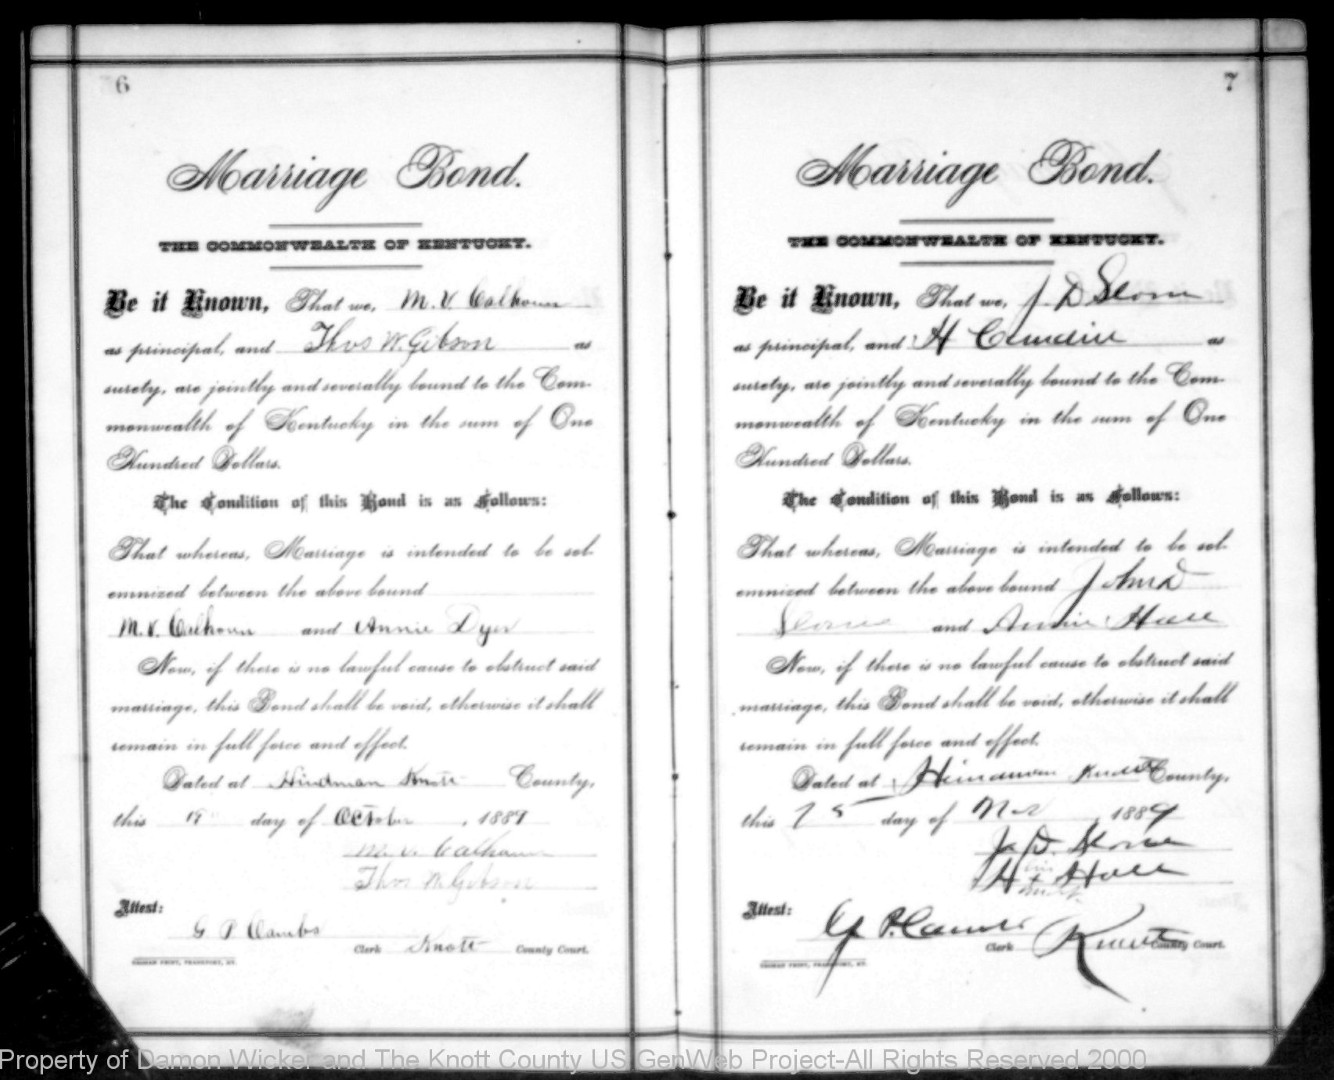 6
Marriage Bond.
THE COMMONWEALTH OF KENTUCKY.
Be it Known, That we, M. V. Calhoun
as principal, and Thos W. Gibson as
surety, are jointly and severally bound to the Com-
monwealth of Kentucky in the sum of One
Hundred Dollars.
The Condition of this Bond is as Follows:
That whereas, Marriage is intended to be sol-
emnized between the above bound
M. V. Calhoun and Annie Dyer
Now, if there is no lawful cause to obstruct said
marriage, this Bond shall be void, otherwise it shall
remain in full force and effect.
Dated at Hindman Knott County,
this day of October, 1889
M. V. Calhoun
Thos W. Gibson
Attest:
G P Combs
Clerk Knott County Court.
7
Marriage Bond.
THE COMMONWEALTH OF KENTUCKY.
Be it Known, That we, J. D. Slone
as principal, and H as
surety, are jointly and severally bound to the Com-
monwealth of Kentucky in the sum of One
Hundred Dollars.
The Condition of this Bond is as Follows:
That whereas, Marriage is intended to be sol-
emnized between the above bound John D
Slone and Annie Hall
Now, if there is no lawful cause to obstruct said
marriage, this Bond shall be void, otherwise it shall
remain in full force and effect.
Dated at Hindman Knott County,
this day of Nov, 1889
J. D. Slone
H his x mark Hall
Attest:
G P. Combs
Clerk Knott County Court.
Property of Damon Wicker and The Knott County US GenWeb Project-All Rights Reserved 2000